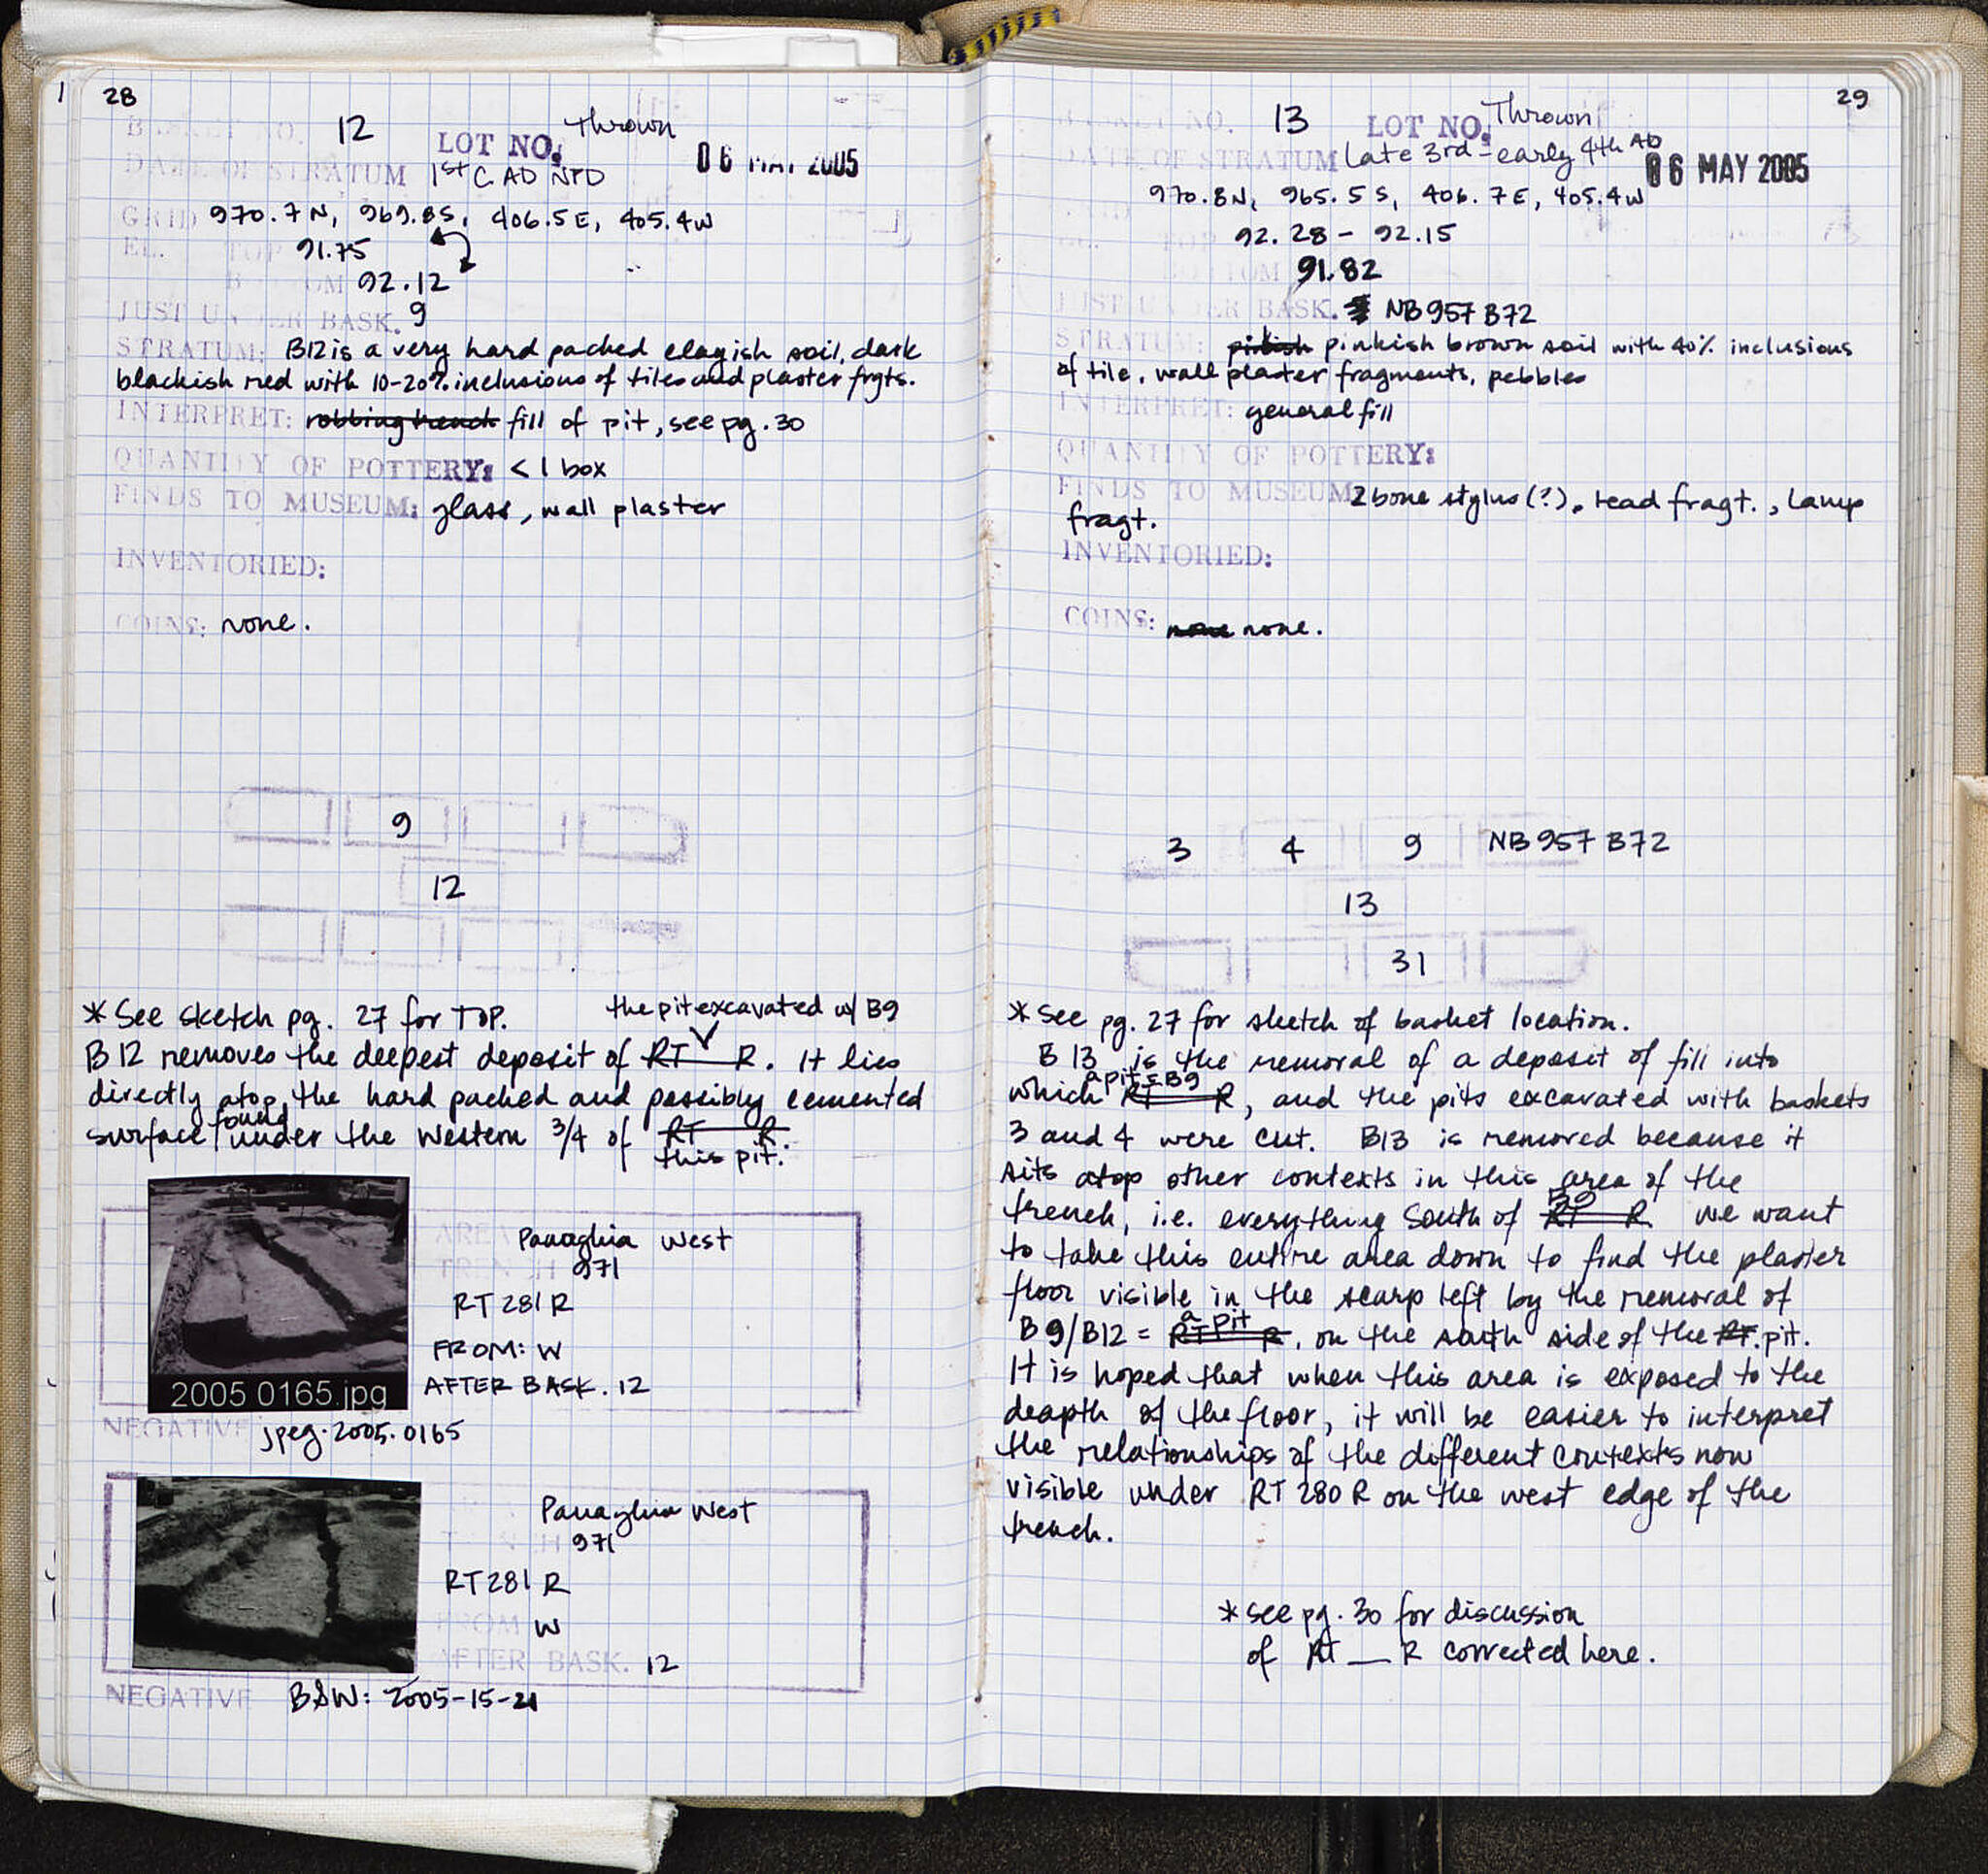 28
BASKET NO. 12 LOT NO. Thrown
DATE OF STRATUM 1st C. AD NPD 06 MAY 2005
GRID 970.7N, 969.8S, 406.5E, 405.4W
EL. TOP 91.75
BOTTOM 92.12
JUST UNDER BASK. 9
STRATUM: B12 is a very hard packed clayish soil, dark
blackish red with 10-20% inclusions of tiles and plaster frgts.
INTERPRET: robbing trench fill of pit, see pg. 30
QUANTITY OF POTTERY: < 1 box
FINDS TO MUSEUM: glass, wall plaster
INVENTORIED:
COINS: none.
9
12
* See sketch pg. 27 for TOP. the pit excavated w/ B9
B 12 removes the deepest deposit of RT R. It lies
directly atop the hard packed and possibly cemented
surface found under the western 3/4 of RT R.
this pit.
AREA Panaghia West
TRENCH 971
RT 281 R
FROM: W
AFTER BASK. 12
2005 0165.jpg
NEGATIVE jpeg. 2005. 0165
Panaghia West
TRENCH 971
RT 281 R
FROM W
AFTER BASK. 12
NEGATIVE B&W: 2005-15-21
29
BASKET NO. 13 LOT NO. Thrown
DATE OF STRATUM Late 3rd - early 4th AD 06 MAY 2005
970.8N, 965.5S, 406.7E, 405.4W
TOP 92.28 - 92.15
BOTTOM 91.82
JUST UNDER BASK. NB957 B72
STRATUM: pinkish pinkish brown soil with 40% inclusions
of tile, wall plaster fragments, pebbles
INTERPRET: general fill
QUANTITY OF POTTERY:
FINDS TO MUSEUM 2 bone stylus (?), lead fragt., lamp
fragt.
INVENTORIED:
COINS: none none.
3 4 9 NB957 B72
13
31
* See pg. 27 for sketch of basket location.
B 13 is the removal of a deposit of fill into
a pit = B9
which RT R, and the pits excavated with baskets
3 and 4 were cut. B13 is removed because it
sits atop other contexts in this area of the
B9
trench, i.e. everything South of RT R we want
to take this entire area down to find the plaster
floor visible in the scarp left by the removal of
a pit
B9/B12 = RT R, on the south side of the RT. pit.
It is hoped that when this area is exposed to the
deapth of the floor, it will be easier to interpret
the relationships of the different contexts now
visible under RT 280 R on the west edge of the
trench.
* see pg. 30 for discussion
of RT __ R corrected here.